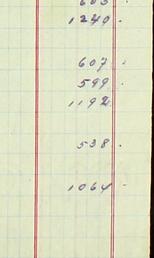 1240.
607.
599.
1192.
538.
1064.